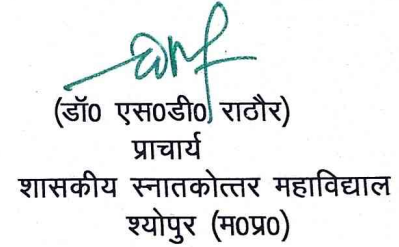 (डॉ0 एस0डी0 राठौर)
प्राचार्य
शासकीय स्नातकोत्तर महाविद्याल
श्योपुर (म0प्र0)